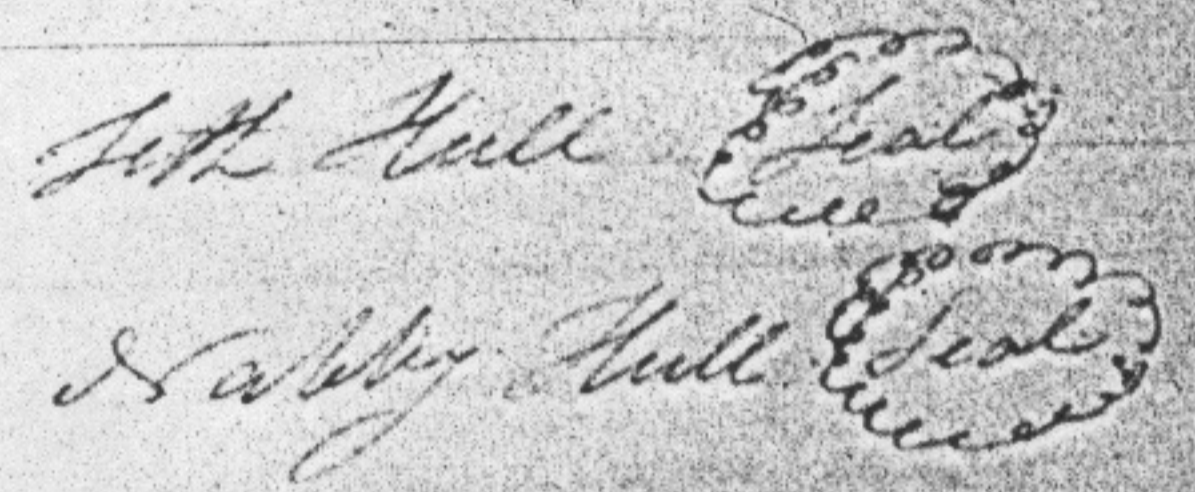 Seth Hull Seal
Nabby Hull Seal